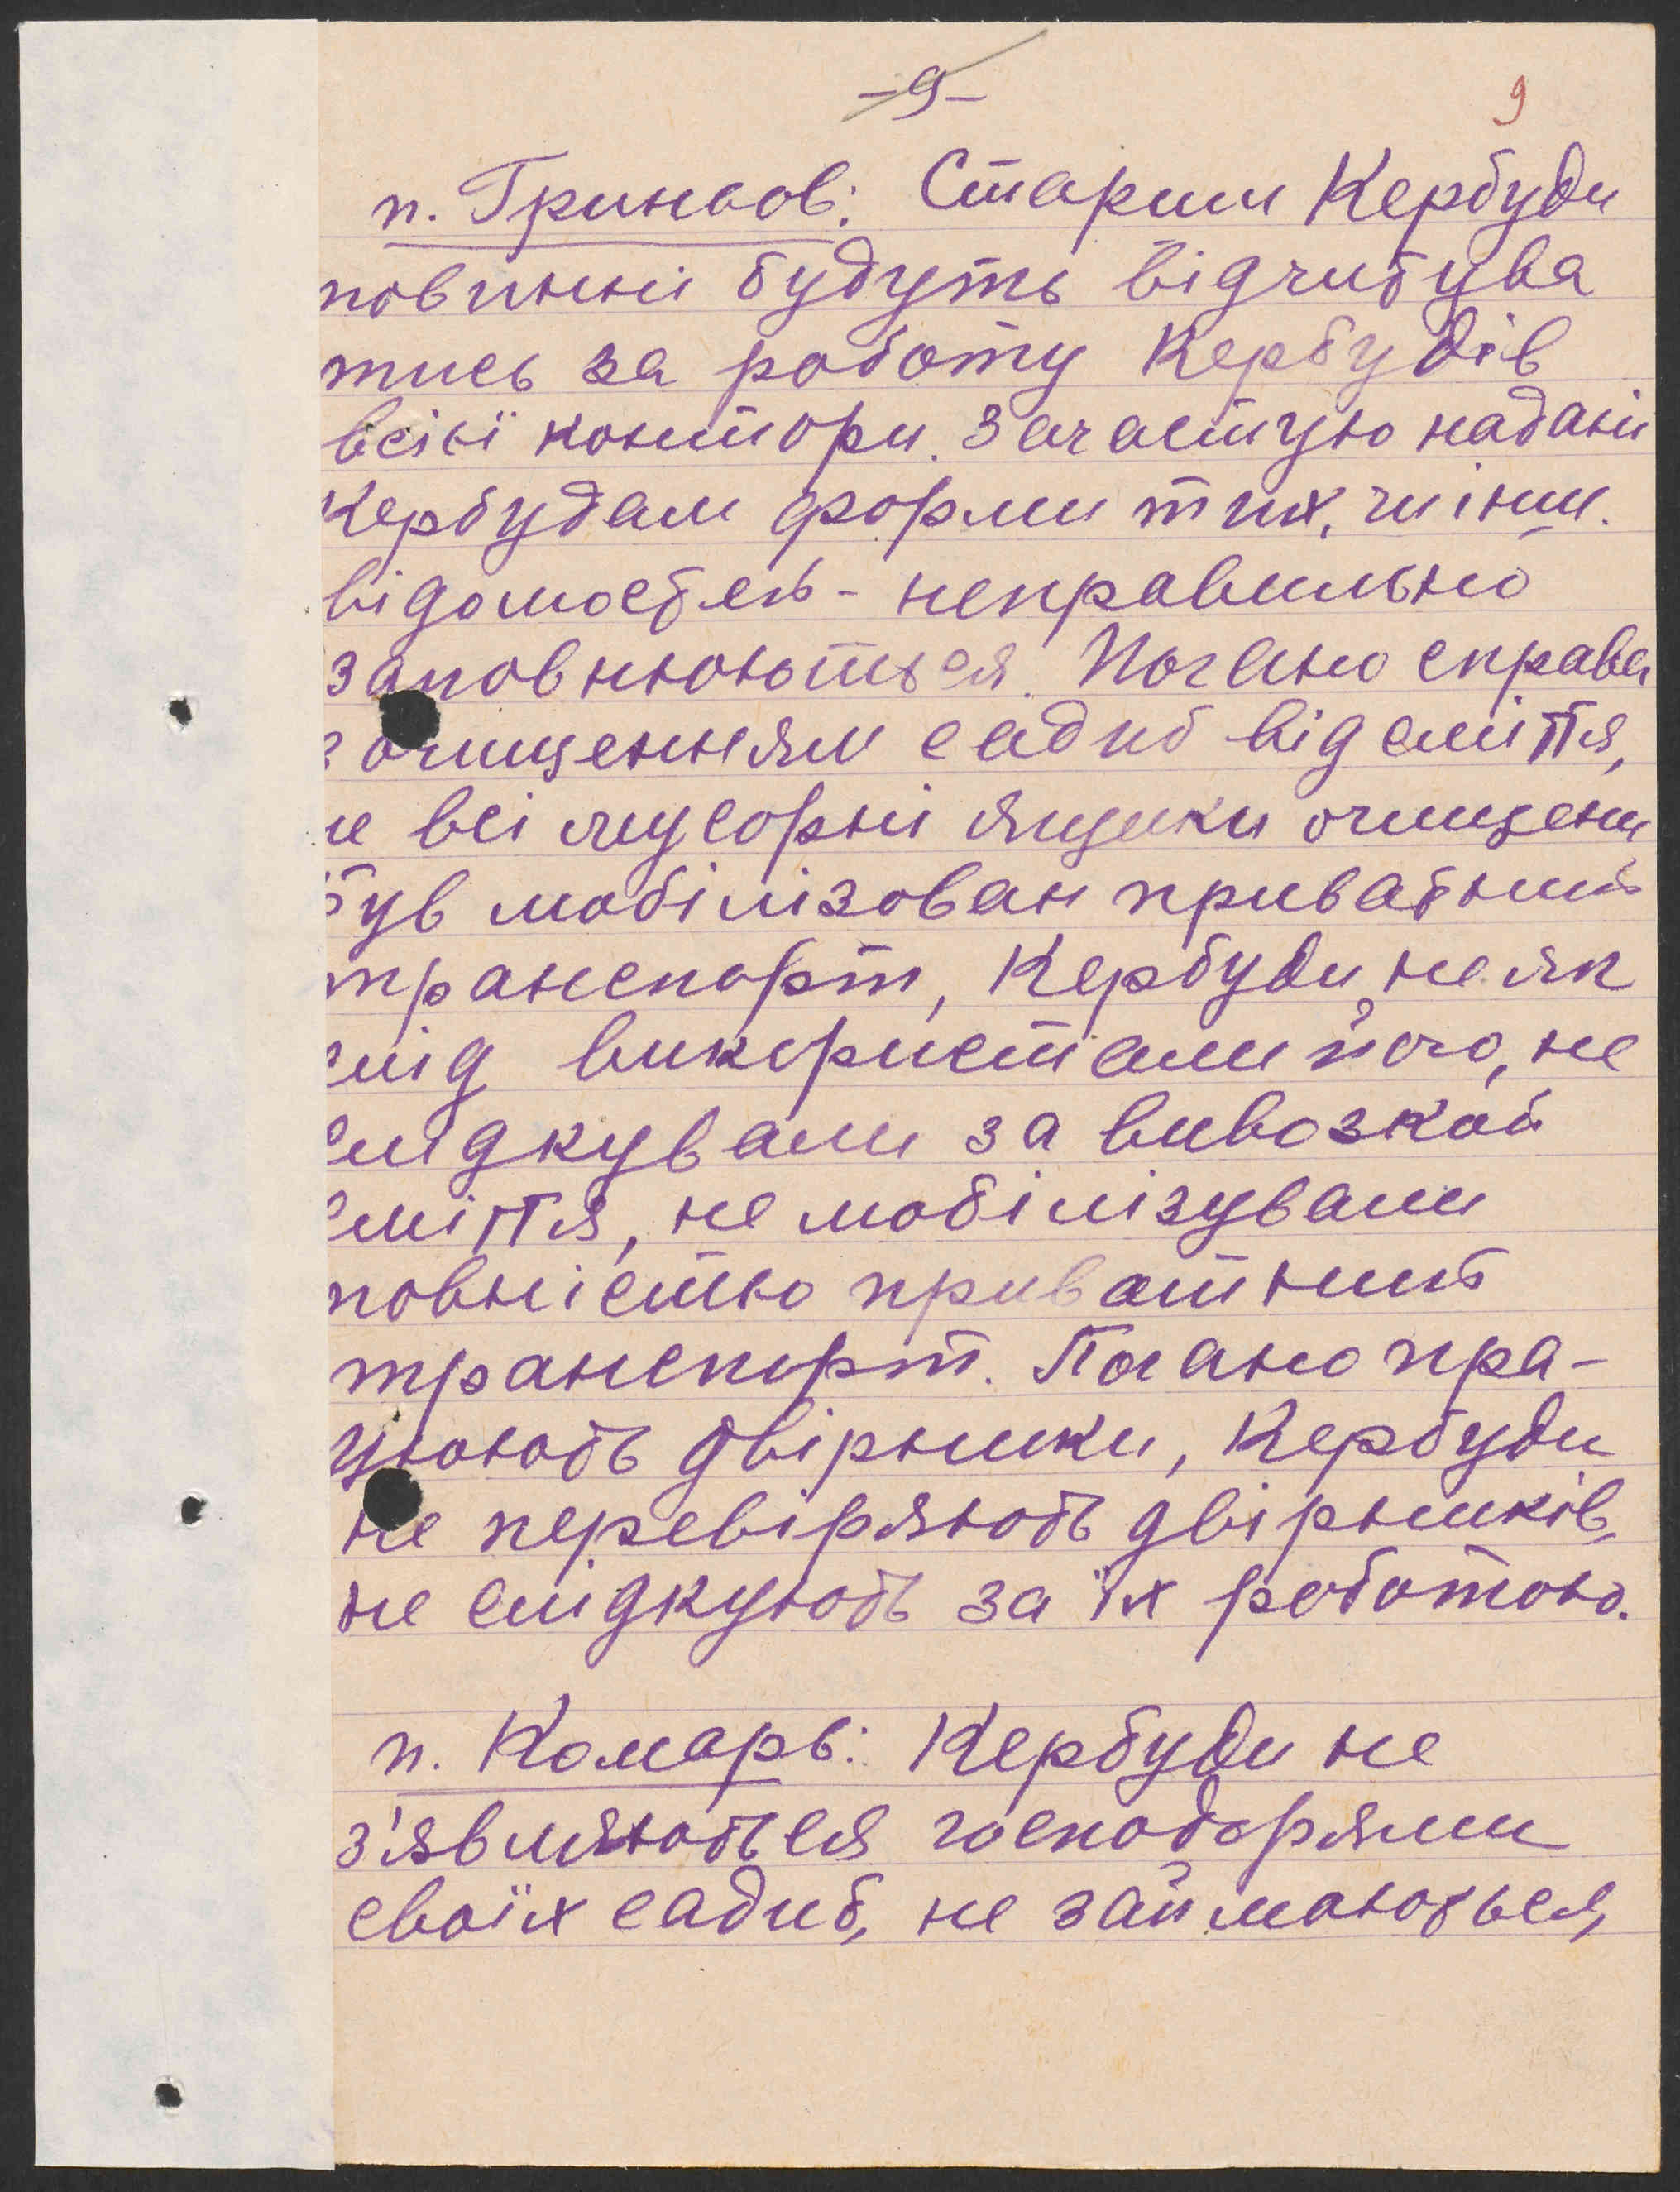 -9-
9
п. Гриньов: Старши Кербуди
повинні будуть відчитува
тись за роботу Кербудів
всієї контори. Зачастую надані
Кербудам форми тих, чи інш.
відомостей - неправильно
заповнюються. Погано справа
з очищенням садиб від сміття,
не всі мусорні ящики очищени
був мобілізован приватний
транспорт, Кербуди не як
слід використали його, не
слідкували за вивозкой
сміття, не мобілізували
повністю приватний
транспорт. Погано пра-
цюють двірники, Кербуди
не перевіряють двірників,
не слідкують за їх роботою.
п. Комарь: Кербуди не
з'являються господарями
своїх садиб, не займаються,